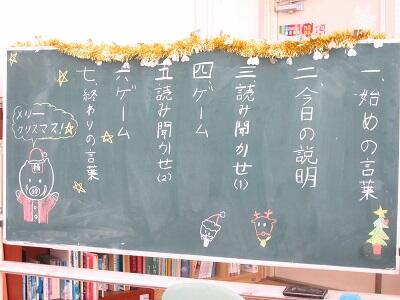 一、始めの言葉
二、今日の説明
三、読み聞かせ(1)
四、ゲーム
五、読み聞かせ(2)
六、ゲーム
七、終わりの言葉
メリー
クリスマス!